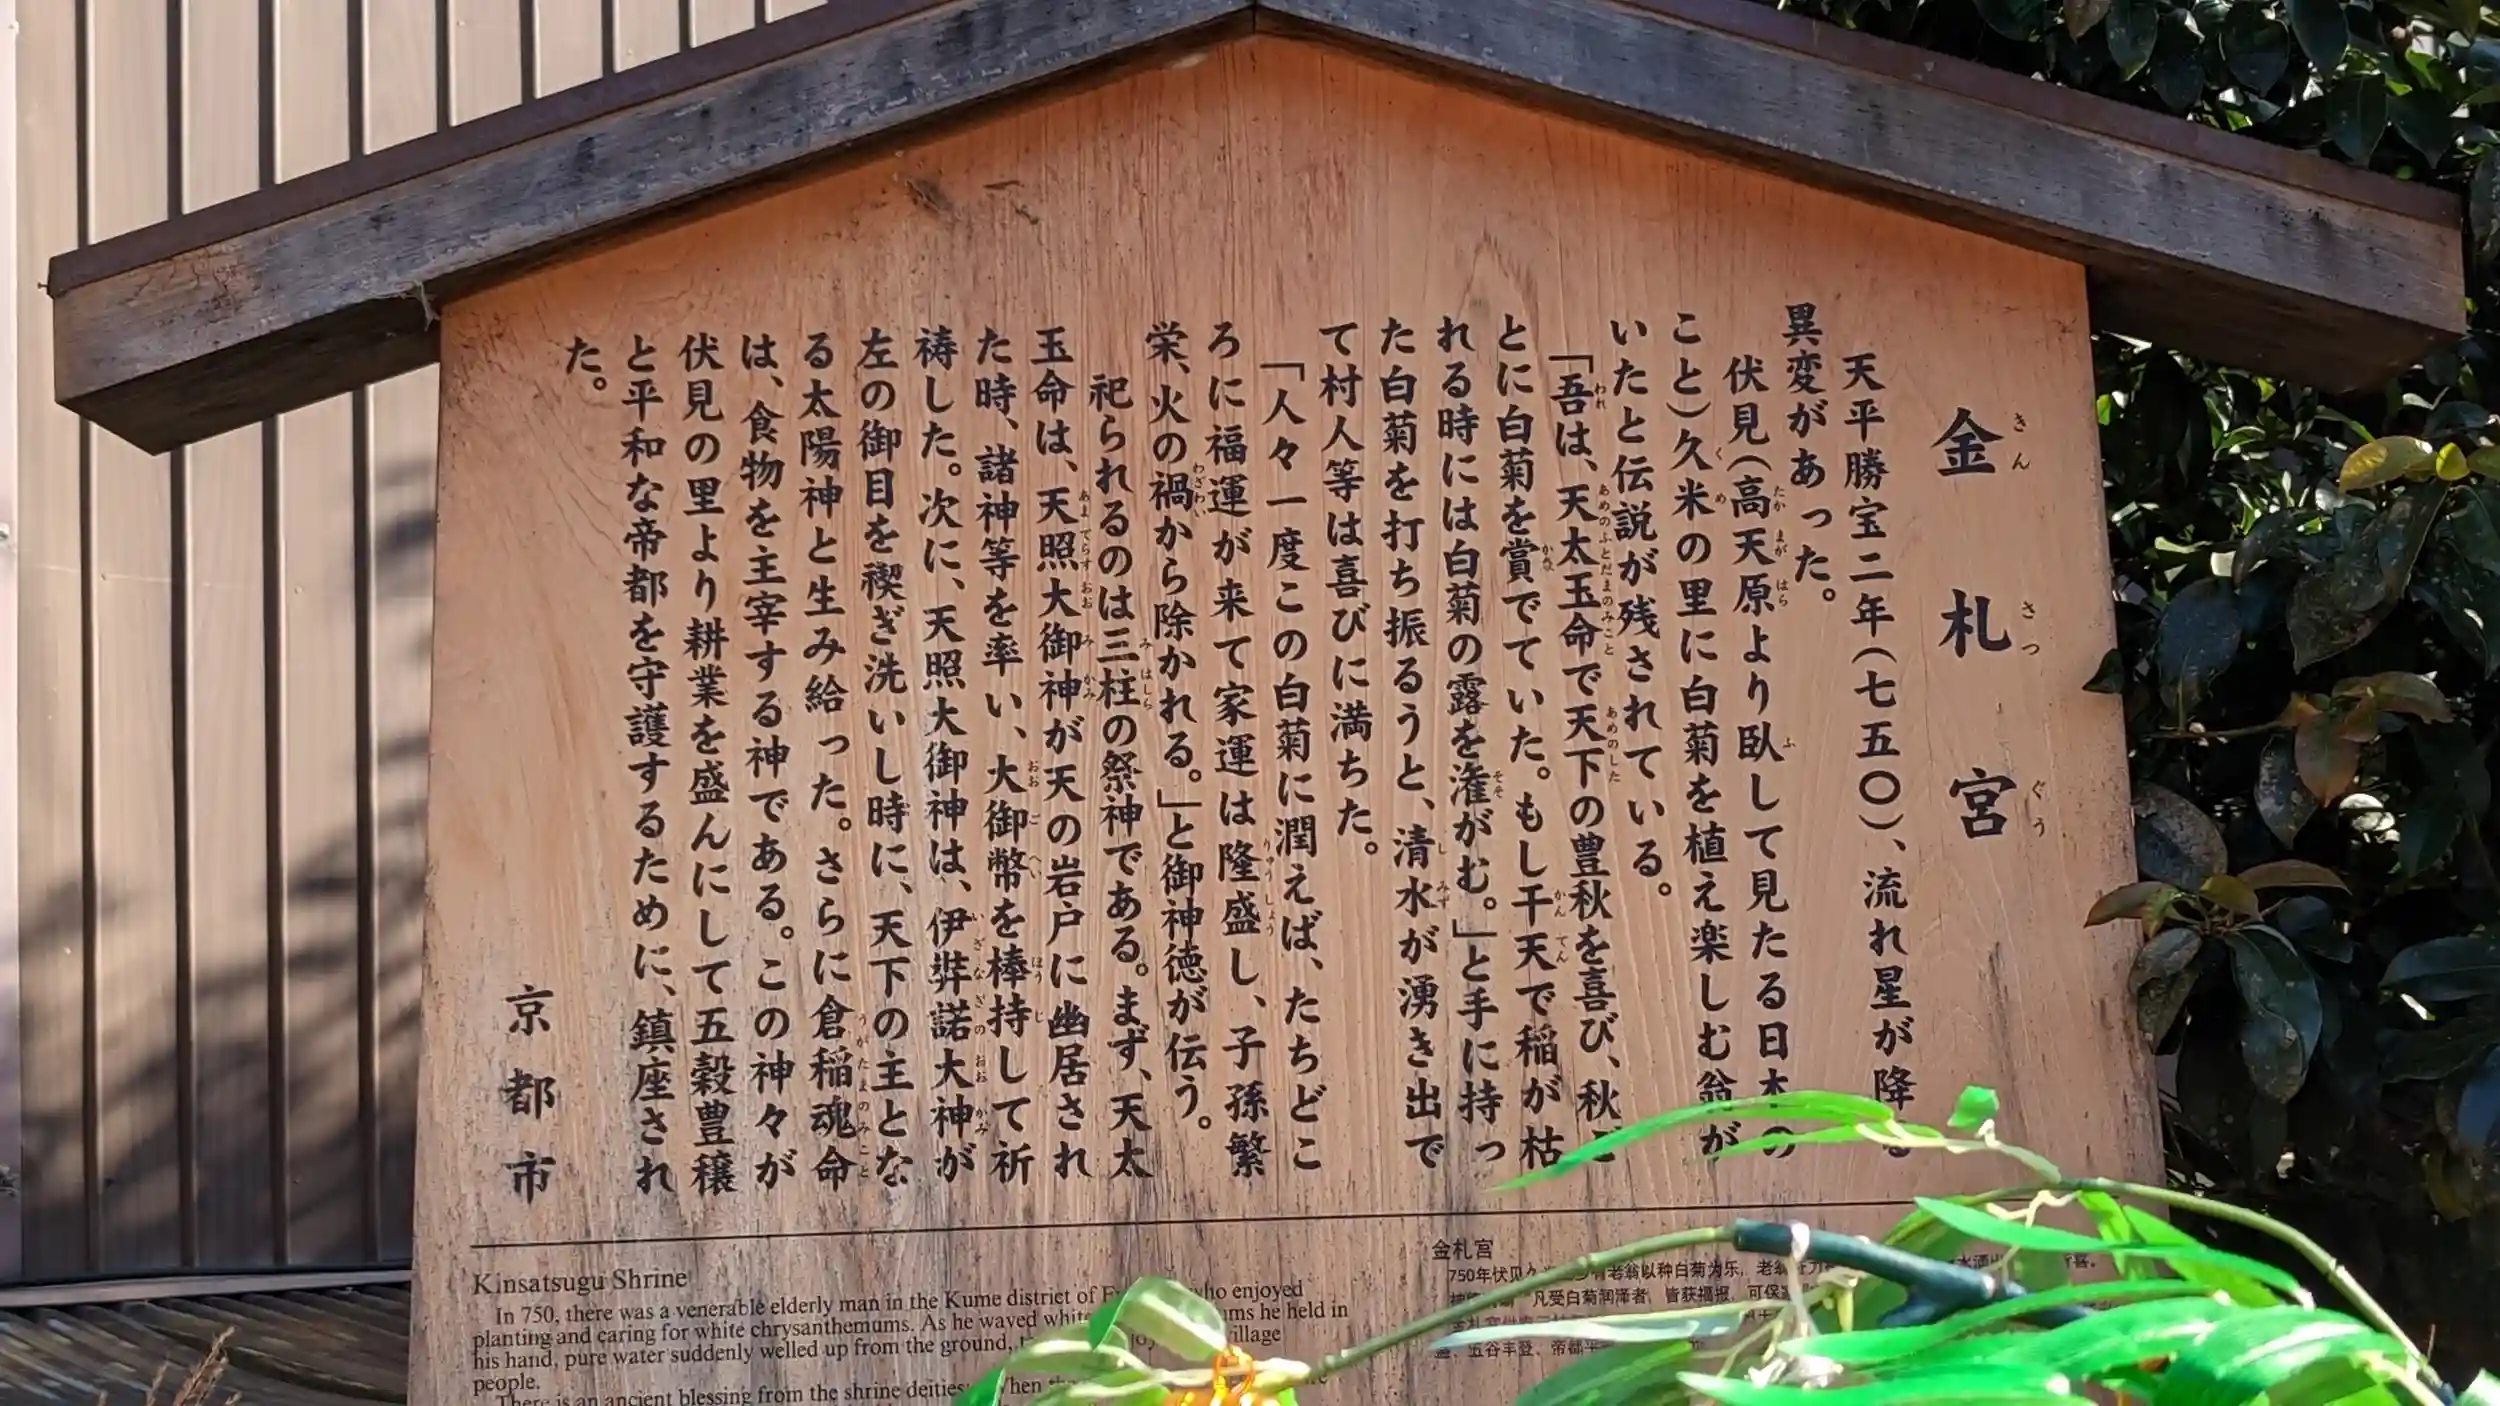 金札宮
天平勝宝二年(七五〇)、流れ星が降る
異変があった。
伏見(高天原より臥して見たる日本の
こと)久米の里に白菊を植え楽しむ翁が
いたと伝説が残されている。
「吾は、天太玉命で天下の豊秋を喜び、秋ご
とに白菊を賞でていた。もし干天で稲が枯
れる時には白菊の露を潅がむ。」と手に持っ
た白菊を打ち振るうと、清水が湧き出で
て村人等は喜びに満ちた。
「人々一度この白菊に潤えば、たちどこ
ろに福運が来て家運は隆盛し、子孫繁
栄、火の禍から除かれる。」と御神徳が伝う。
祀られるのは三柱の祭神である。まず、天太
玉命は、天照大御神が天の岩戸に幽居され
た時、諸神等を率い、大御幣を棒持して祈
祷した。次に、天照大御神は、伊弉諾大神が
左の御目を禊ぎ洗いし時に、天下の主とな
る太陽神と生み給った。さらに倉稲魂命
は、食物を主宰する神である。この神々が
伏見の里より耕業を盛んにして五穀豊穣
と平和な帝都を守護するために、鎮座され
た。
京都市
Kinsatsugu Shrine
In 750, there was a venerable elderly man in the Kume district of who enjoyed
planting and caring for white chrysanthemums. As he waved white he held in
his hand, pure water suddenly welled up from the ground, village
people.
There is an ancient blessing from the shrine deities: When
金札宮
750年伏见 老翁以种白菊为乐，老
凡受白菊润泽者，皆获福报，可保
五谷丰登、帝都